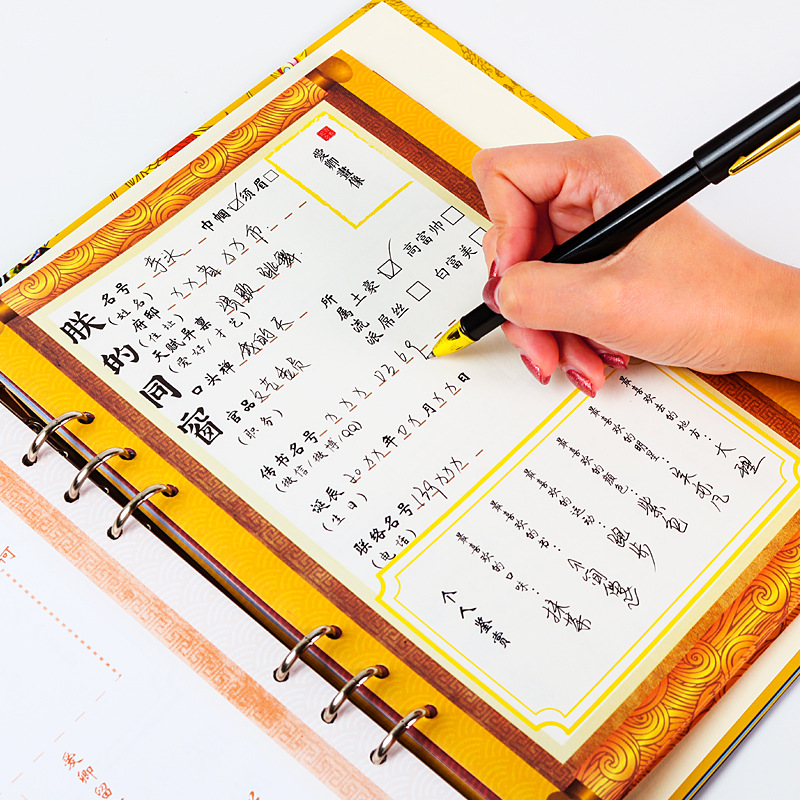 爱卿画像
巾帼☑须眉□
朕的同窗
名号
(姓名)
府邸 XX省XX市
(住址)
天赋异禀 唱歌 跳舞
(爱好/才艺)
口头禅 我的天
官品 文艺委员
(职务)
所属流派
土豪☑ 高富帅□
屌丝□ 白富美□
传书名号
(微信/微博/QQ)
诞辰 20XX年0X月XX日
(生日)
联络名号 139XXX
(电话)
个人鉴赏
最喜欢的口味: 抹茶
最喜欢的书:
最喜欢的运动: 跑步
最喜欢的颜色: 紫色
最喜欢的明星:
最喜欢去的地方: 大理
爱卿留